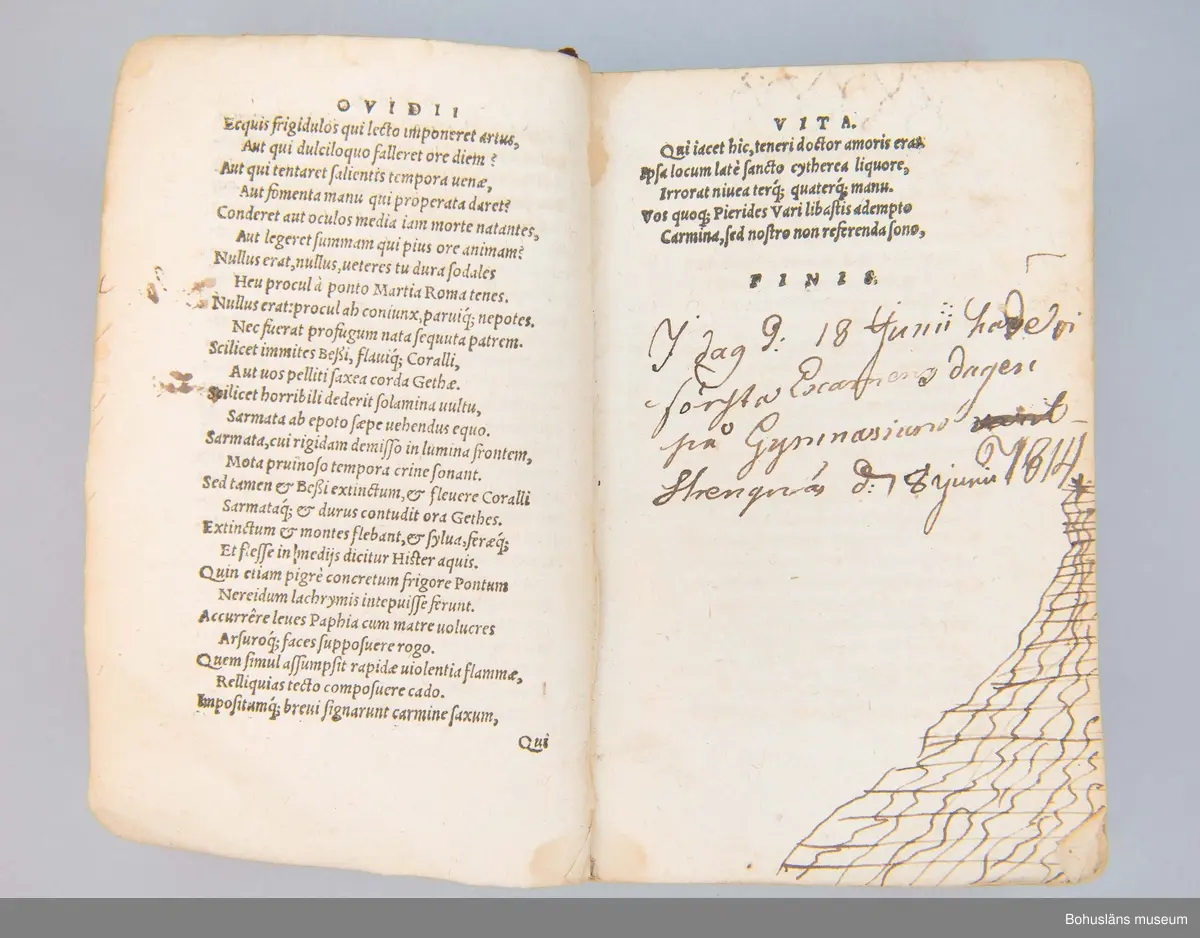 OVIDII
Ecquis frigidulos qui lecto imponeret artus,
Aut qui dulciloquo falleret ore diem?
Aut qui tentaret salientis tempora uenæ,
Aut fomenta manu qui properata daret?
Conderet aut oculos media iam morte natantes,
Aut legeret summam qui pius ore animam?
Nullus erat, nullus, ueteres tu dura sodales
Heu procul à ponto Martia Roma tenes.
Nullus erat: procul ab coniunx, paruiq́; nepotes.
Nec fuerat profugum nata sequuta patrem.
Scilicet immites Beßi, flauiq́; Coralli,
Aut uos pelliti saxea corda Gethæ.
Scilicet horribili dederit solamina uultu,
Sarmata ab epoto sæpe uehendus equo.
Sarmata, cui rigidam demisso in lumina frontem,
Mota pruinoso tempora crine sonant.
Sed tamen & Beßi extinctum, & fleuere Coralli
Sarmataq́; & durus contudit ora Gethes.
Extinctum & montes flebant, & syluæ, feræq́;
Et flesse in medijs dicitur Hister aquis.
Quin etiam pigrè concretum frigore Pontum
Nereidum lachrymis intepuisse ferunt.
Accurrêre leues Paphia cum matre uolucres
Arsuroq́; faces supposuere rogo.
Quem simul assumpsit rapidæ uiolentia flammæ,
Relliquias tecto composuere cado.
Impositamq́; breui signarunt carmine saxum,
Qui
VITA.
Qui iacet hic, teneri doctor amoris erat.
Ipsa locum latè sancto cytherea liquore,
Irrorat niuea terq́; quaterq́; manu.
Vos quoq́; Pierides Vari libastis adempto
Carmina, sed nostro non referenda sono,
FINIS.
I dag d: 18 Junii hade vi
första Examens dagen
på Gymnasium
Strengnäs d: 18 junii 1814
Bohusläns museum